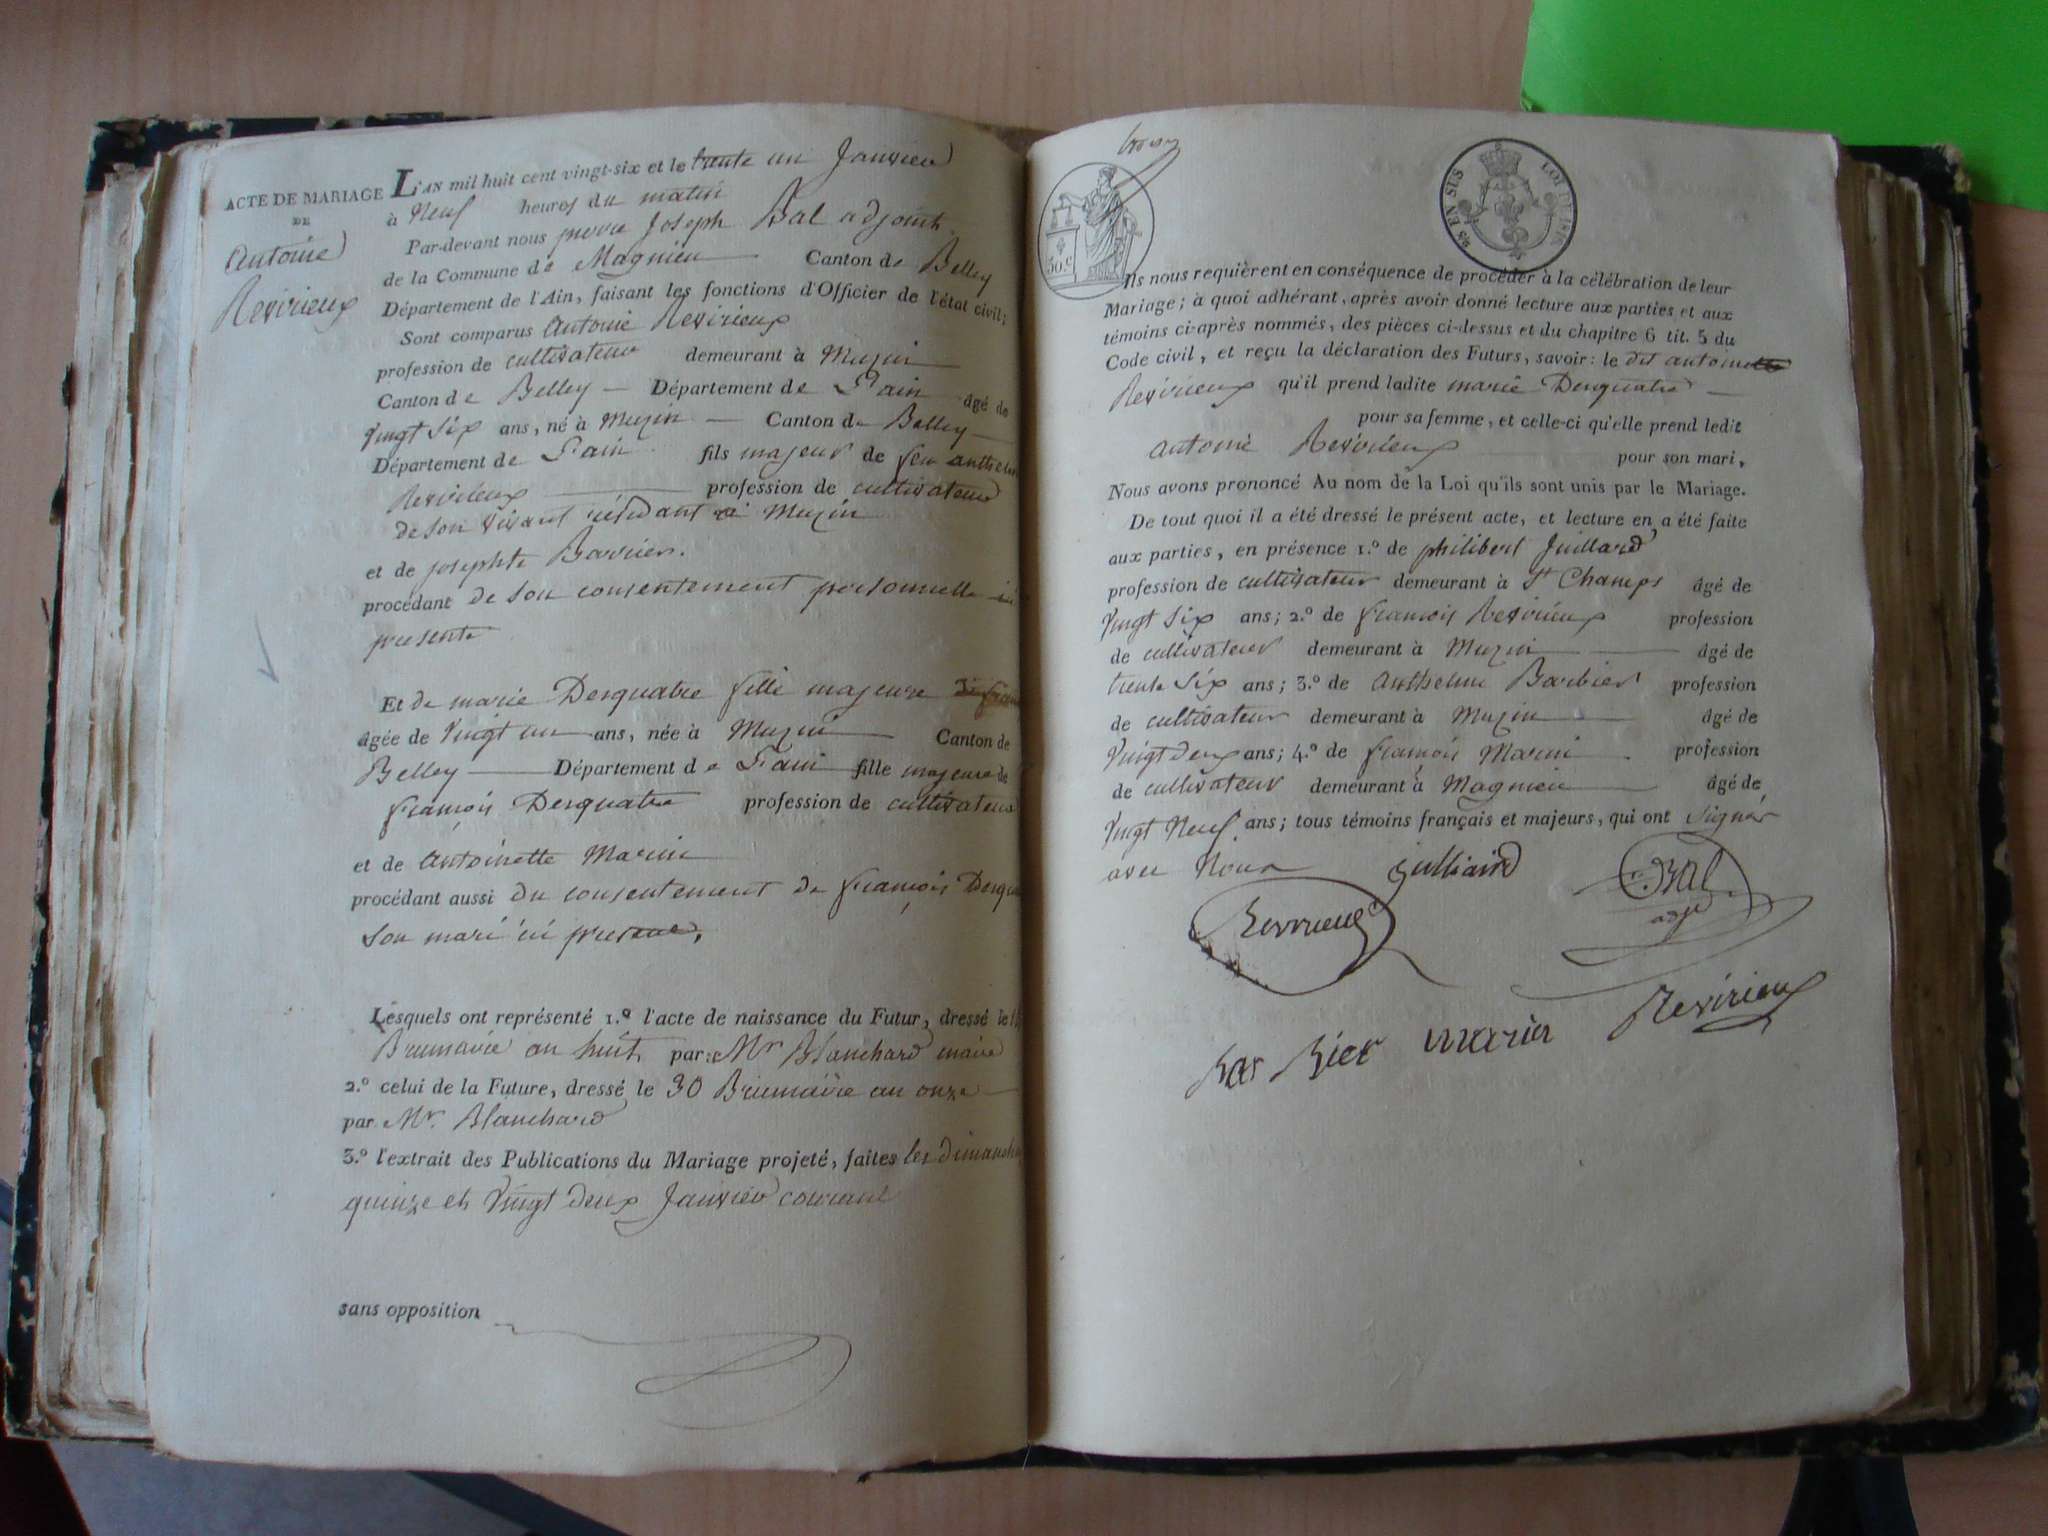 ACTE DE MARIAGE
DE
Antoine
Revirieux
L'AN mil huit cent vingt-six et le trente un Janvier
à Neuf heures du matin
Par-devant nous pierre Joseph Bal adjoint
de la Commune de Magnieu Canton de Belley
Département de l'Ain, faisant les fonctions d'Officier de l'état civil;
Sont comparus Antoine Revirieux
profession de cultivateur demeurant à Muzin
Canton de Belley Département de L'ain âgé de
Vingt Six ans, né à Muzin Canton de Belley
Département de L'ain fils majeur de feu anthelme
Revirieux profession de cultivateur
de son vivant résidant à Muzin
et de josephte Barrier.
procédant de son consentement personnelle
presente
Et de marie Desquatre fille majeure
âgée de Vingt un ans, née à Muzin Canton de
Belley Département de L'ain fille majeure de
françois Desquatre profession de cultivateur
et de Antoinette Marin
procédant aussi du consentement de françois
son mari ici present,
Lesquels ont représenté 1.º l'acte de naissance du Futur, dressé le
Brumaire an huit par Mr Blanchard maire
2.º celui de la Future, dressé le 30 Brumaire an onze
par Mr. Blanchard
3.º l'extrait des Publications du Mariage projeté, faites les dimanches
quinze et Vingt deux Janvier courant
sans opposition
50.c
25 EN SUS LOI DE 1816
Ils nous requièrent en conséquence de procéder à la célébration de leur
Mariage; à quoi adhérant, après avoir donné lecture aux parties et aux
témoins ci-après nommés, des pièces ci-dessus et du chapitre 6 tit. 5 du
Code civil, et reçu la déclaration des Futurs, savoir: le dit antoine
Revirieux qu'il prend ladite marie Desquatre
pour sa femme, et celle-ci qu'elle prend ledit
antoine Revirieux pour son mari,
Nous avons prononcé Au nom de la Loi qu'ils sont unis par le Mariage.
De tout quoi il a été dressé le présent acte, et lecture en a été faite
aux parties, en présence 1.º de philibert Juillard
profession de cultivateur demeurant à St Champs âgé de
Vingt Six ans; 2.º de françois Revirieux profession
de cultivateur demeurant à Muzin âgé de
trente Six ans; 3.º de Anthelme Barbier profession
de cultivateur demeurant à Muzin âgé de
Vingt deux ans; 4.º de françois Marin profession
de cultivateur demeurant à Magnieu âgé de
Vingt Neuf ans; tous témoins français et majeurs, qui ont Signés
avec Nous Julliard Bal
adj
Revirieux
Bar Bier marin Revirieux